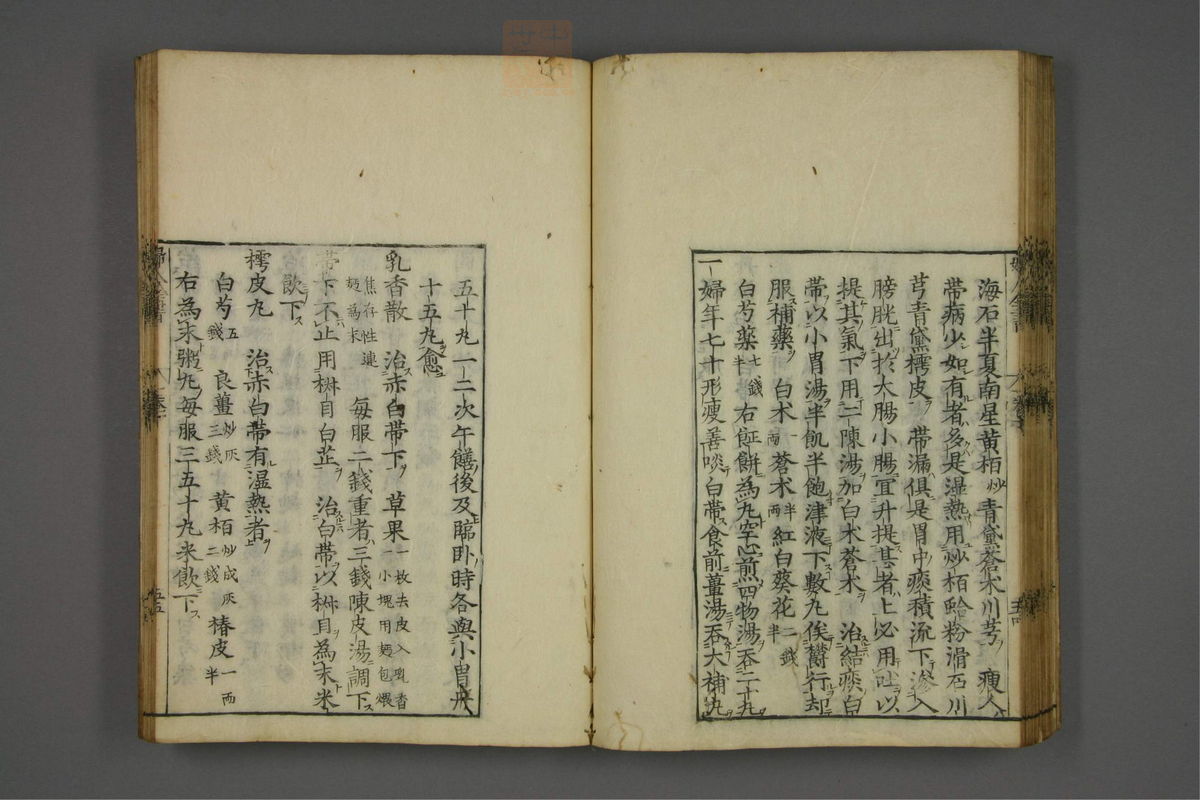 海石半夏南星黄栢炒青黛蒼朮川芎 瘦人
帶病少如有者多是湿熱用炒栢蛤粉滑石川
芎青黛樗皮 帶漏俱是胃中痰積流下滲入
膀胱出於大腸小腸宜升提甚者上必用吐以
提其氣下用二陳湯加白朮蒼朮 治結痰白
帶以小胃湯半飢半飽津液下數丸俟欝行却
服補藥 白朮一兩蒼朮半兩紅白葵花二錢半
白芍藥七錢半右𩜹餅為丸空心煎四物湯吞二十丸
一婦年七十形瘦善啖白帶食前薑湯吞大補丸
五十丸一二次午饍後及臨卧時各與小胃丹
十五丸愈
乳香散 治赤白帶下 草果一枚去皮入乳香一小塊用麺包煨
焦存性連麪為末 每服二錢重者三錢陳皮湯調下
帶下不止用椒目白芷 治白帶以椒目為末米
飲下
樗皮丸 治赤白帶有湿熱者
白芍五錢 良薑炒灰三錢 黄栢炒成灰二錢 椿皮一兩半
右為末粥丸每服三五十丸米飲下